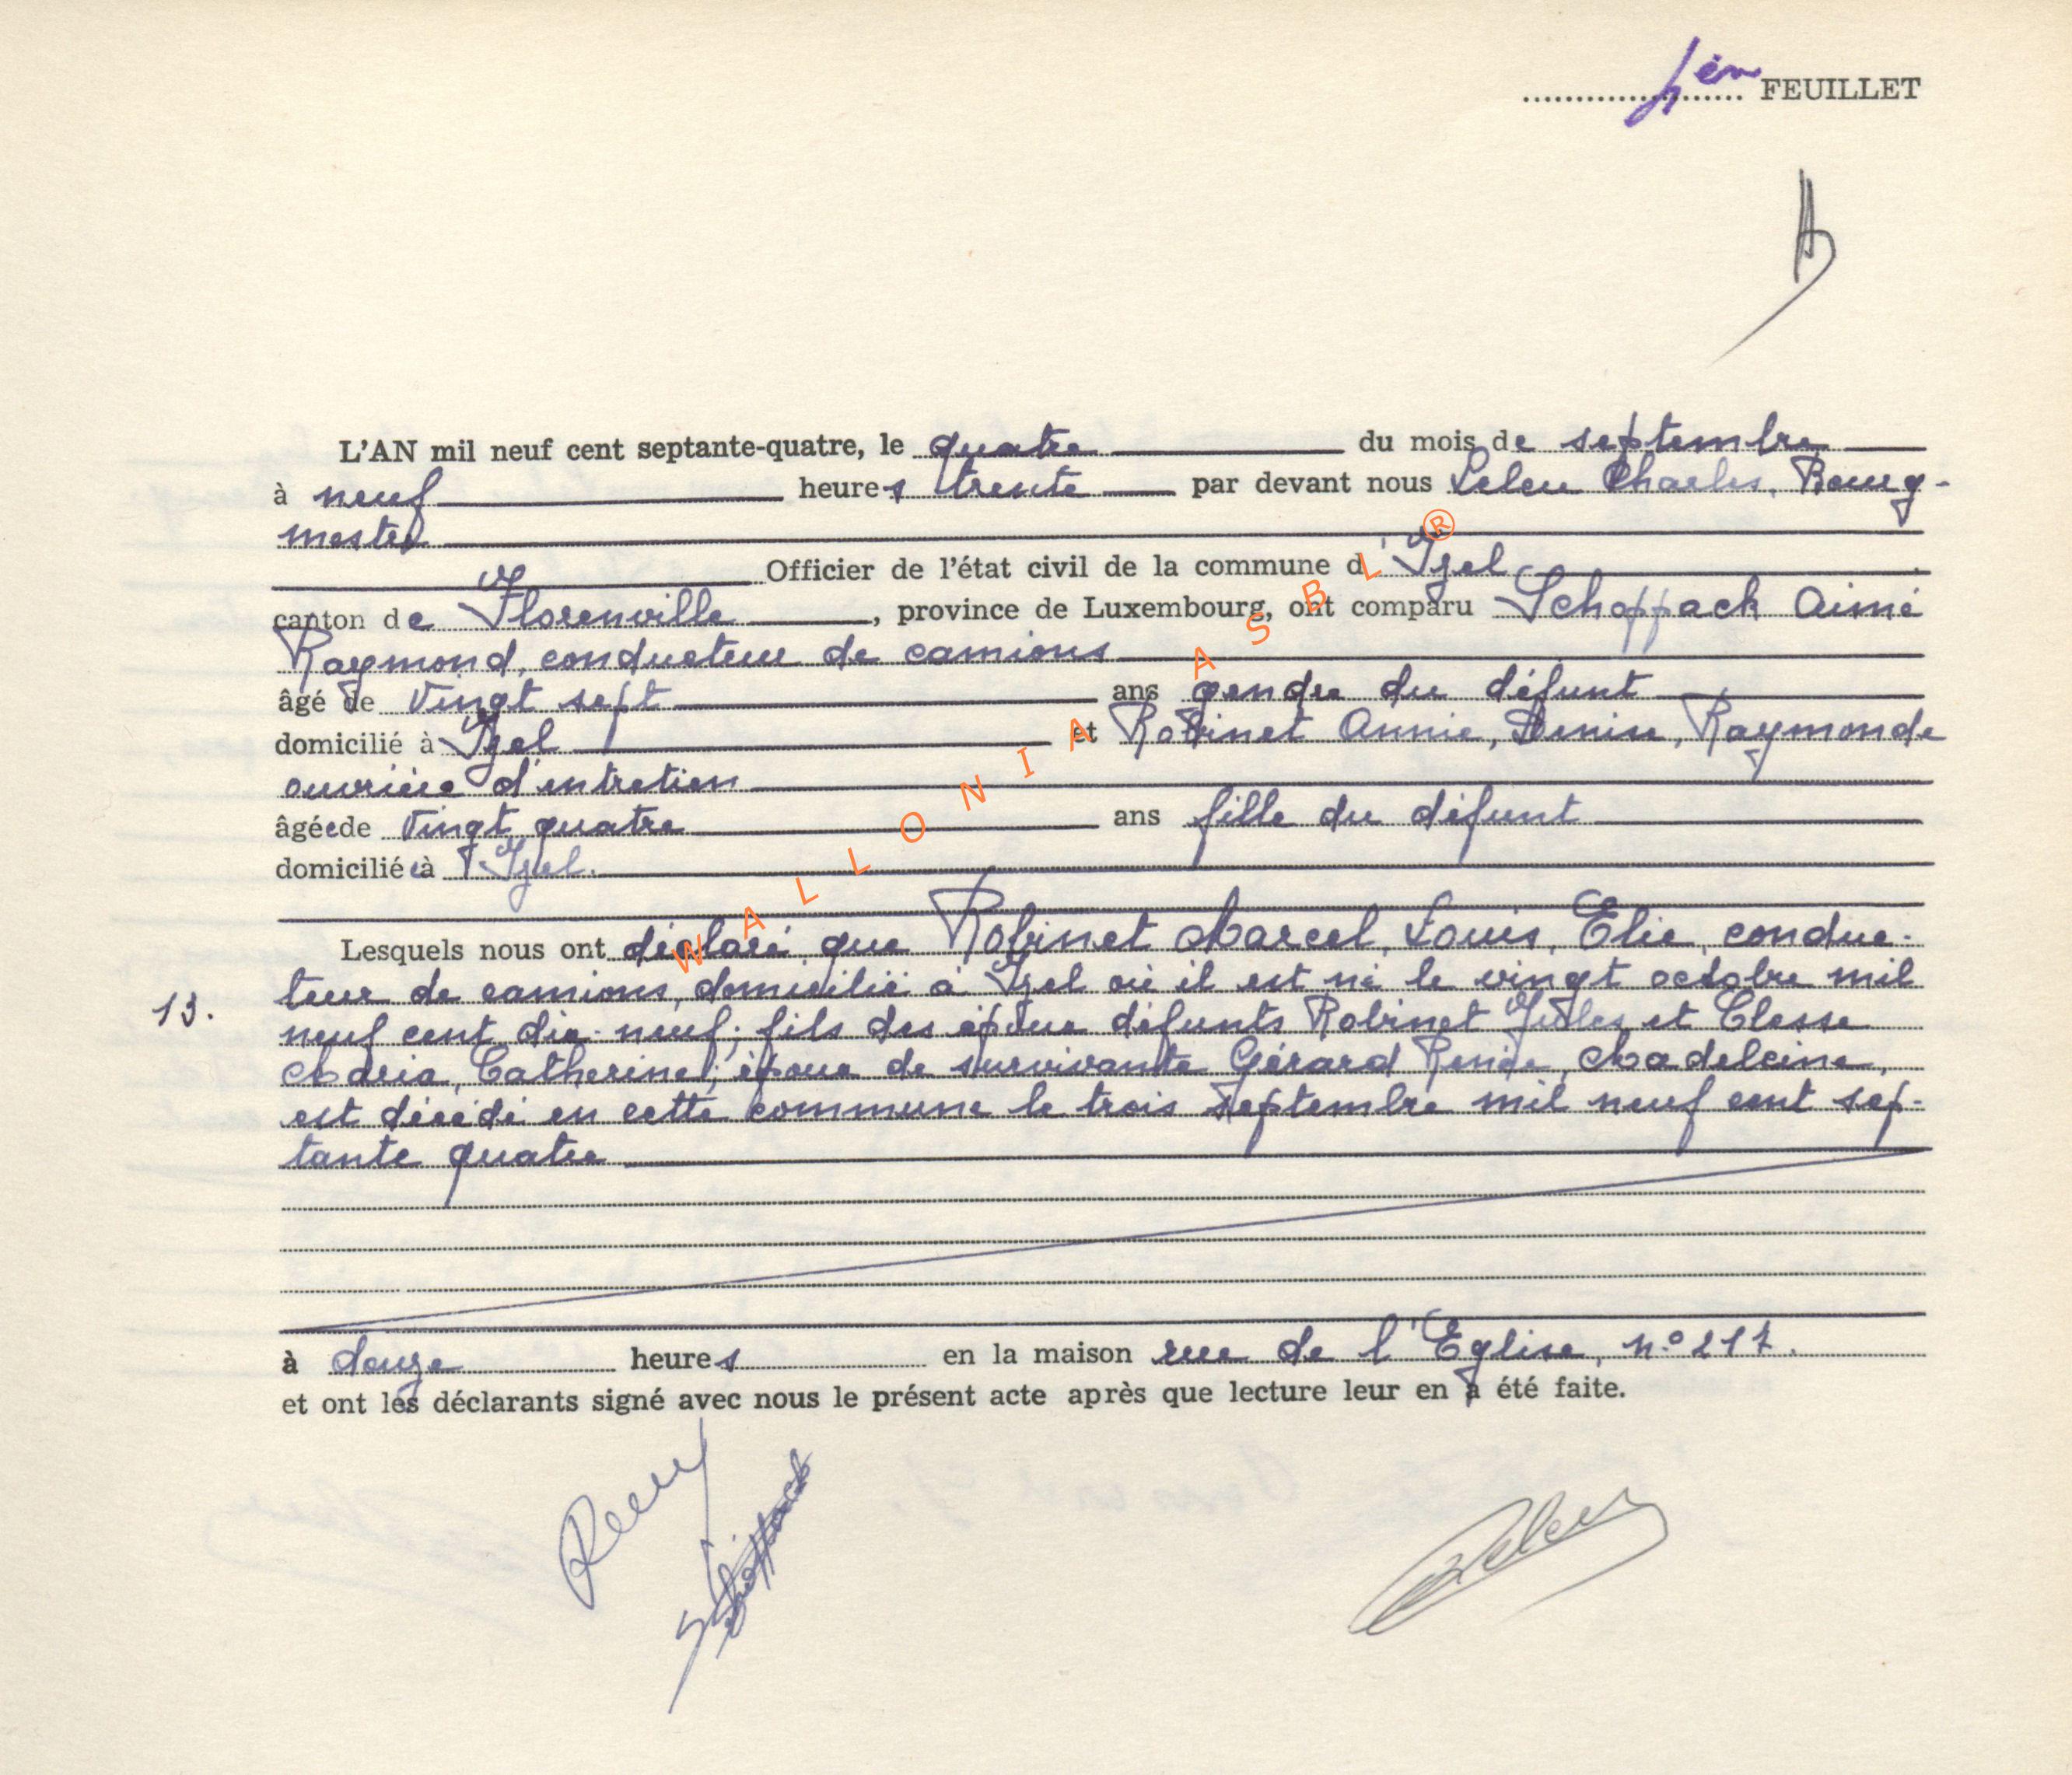 FEUILLET
L'AN mil neuf cent septante-quatre, le quatre du mois de septembre
à neuf heures trente par devant nous Leleu Charles, Bourg-
mestre
Officier de l'état civil de la commune d'Izel
canton de Florenville, province de Luxembourg, ont comparu Schoppach Aimé
Raymond, conducteur de camions
âgé de vingt sept ans gendre du défunt
domicilié à Izel et Robinet Annie, Denise, Raymonde
ouvrière d'entretien
âgée de vingt quatre ans fille du défunt
domiciliée à Izel.
Lesquels nous ont déclaré que Robinet Marcel, Louis, Elie, conduc-
13. teur de camions, domicilié à Izel où il est né le vingt octobre mil
neuf cent dix-neuf; fils des époux défunts Robinet Jules et Clesse
Maria, Catherine; époux de survivante Gérard Renée, Madeleine,
est décédé en cette commune le trois septembre mil neuf cent sep-
tante quatre
à douze heures en la maison rue de l'Eglise, n.º 217.
et ont les déclarants signé avec nous le présent acte après que lecture leur en a été faite.
Leleu
WALLONIA ASBL ®